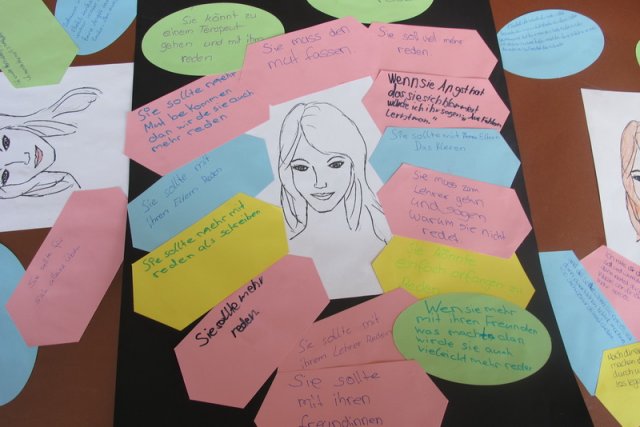 Sie könnt zu
einem Terapeut
gehen und mit ihm
reden
Sie muss den
mut fassen.
Sie soll viel mehr
reden.
Sie sollte mehr
Mut bekommen
dan wirde sie auch
mehr reden
Wenn sie Angst hat
das sie sich blamiert
würde ich ihr sagen: Aus Fehlern
Lernt man.
Sie sollte mit
ihren Eltern Reden
Sie sollte mit ihren Eltern
Das Kleren
Sie muss zum
Lehrer gehn
und sagen
warum sie nicht
redet
Sie sollte mehr mit
reden als schreiben
Sie könnte
einfach anfangen zu
Reden
Sie sollte mehr
reden
Sie sollte mit
ihrem Lehrer Reden
Wenn sie mehr
mit ihren Freunden
was macht dan
wirde sie auch
vieleicht mehr reden
Sie sollte
mit ihren
freundinnen